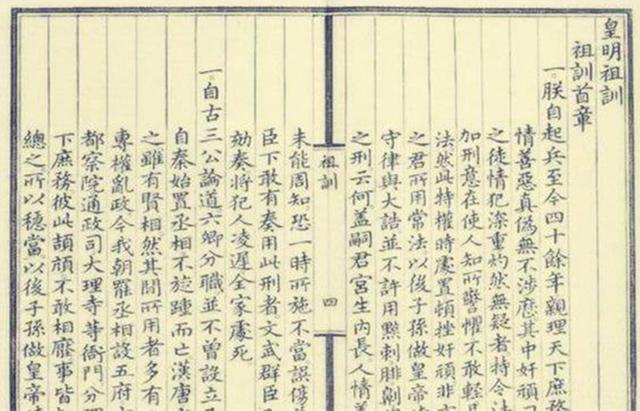 皇明祖訓
祖訓首章
一。朕自起兵至今四十餘年親理天下庶務
情善惡真偽無不涉歷其中奸頑
之徒情犯深重灼然無疑者特令法
加刑意在使人知所警懼不敢輕
法然此特權時處置頓挫奸頑非
之君所用常法以後子孫做皇帝
守律與大誥並不許用黥刺腓劓
之刑云何蓋嗣君宮生內長人情善
祖訓 四
未能周知恐一時所施不當誤傷
臣下敢有奏用此刑者文武群臣
劾奏將犯人凌遲全家處死
一。自古三公論道六卿分職並不曾設立
自秦始置丞相不旋踵而亡漢唐
之雖有賢相然其間所用者多有
專權亂政今我朝罷丞相設五府
都察院通政司大理寺等衙門分理
下庶務彼此頡頏不敢相壓事皆
總之所以穩當以後子孫做皇帝